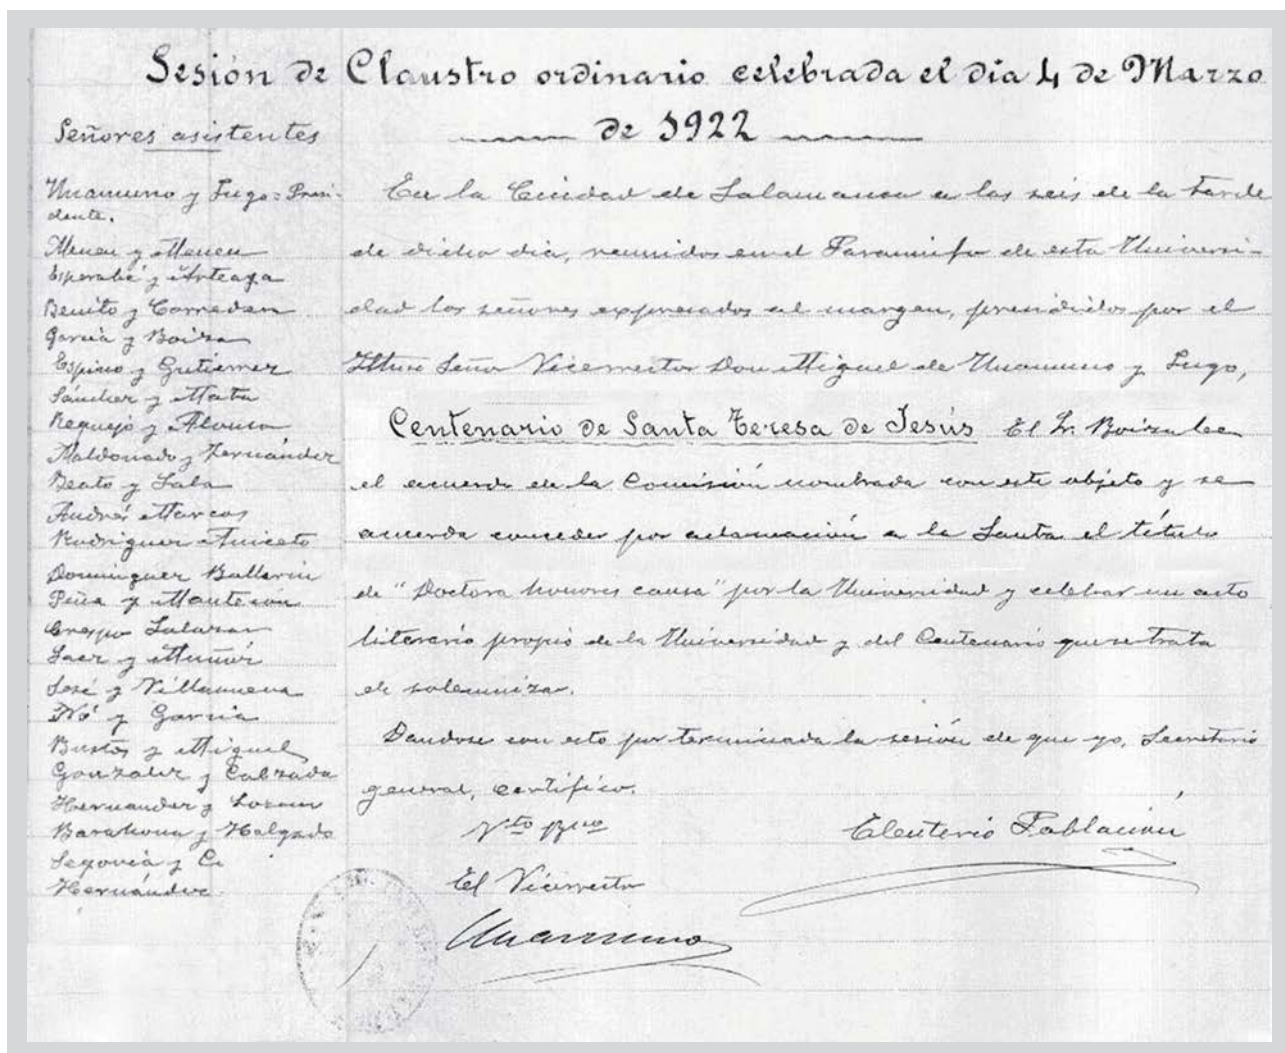 Sesión de Claustro ordinario celebrada el dia 4 de Marzo
de 1922
Señores asistentes
Unamuno y Jugo = Presi-
dente.
Meneu y Meneu
Esperabé y Arteaga
Benito y Corredera
García y Boiza
Espino y Gutierrez
Sánchez y Mata
Requejo y Alonso
Maldonado y Fernández
Beato y Sala
Andrés Marcos
Rodriguez Aniceto
Dominguez Ballarin
Peña y Mantecón
Crespo Salazar
Saez y Muñoz
José y Villanueva
Nó y García
Bustos y Miguel
Gonzalez y Calzada
Hernandez y
Barahona y Holgado
Segovia y C.
Hernández.
En la Ciudad de Salamanca a las seis de la tarde
de dicho dia, reunidos en el Paraninfo de esta Universi-
dad los señores expresados al margen, presididos por el
Iltmo Señor Vicerrector Don Miguel de Unamuno y Jugo,
Centenario de Santa Teresa de Jesús El Sr. Boiza lee
el acuerdo de la Comisión nombrada con este objeto y se
acuerda conceder por aclamación a la Santa el título
de "Doctora honores causa" por la Universidad y celebrar un acto
literario propio de la Universidad y del Centenario que se trata
de solemnizar.
Dandose con esto por terminada la sesión de que yo, Secretario
general, certifico.
Vto Bno
Eleuterio Población
El Vicerrector
Unamuno